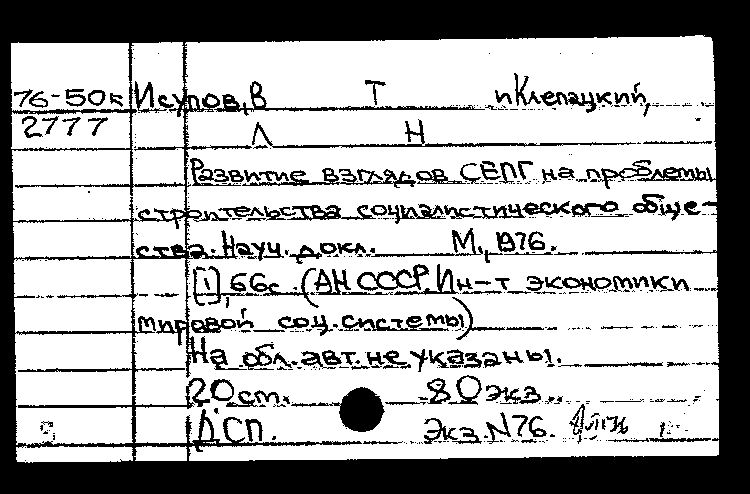 76-50к Исупов, В Т и Клепацкий,
2777 Л Н
Развитие взглядов СЕПГ на проблемы
строительства социалистического обще-
ства. Науч. докл. М., 1976.
[1], 66с. (АН СССР. Ин-т экономики
мировой соц. системы)
На обл. авт. не указаны.
20 ст. 80 экз..
ДСП. Экз. N76.